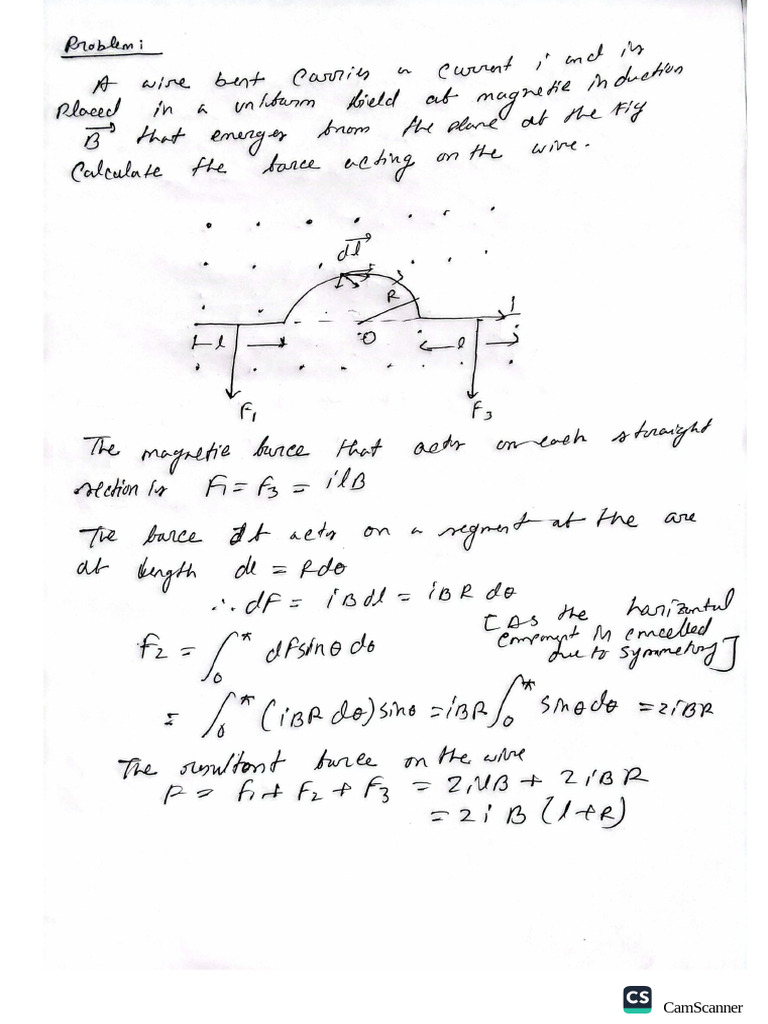 Problem:
A wire bent carries a current i and is
Placed in a uniform field of magnetic induction
B⃗ that emerges from the plane of the Fig
Calculate the force acting on the wire.
dl⃗
R
i
l O l
F₁ F₃
The magnetic force that acts on each straight
section is F₁ = F₃ = ilB
The force df acts on a segment of the arc
of length dl = Rdθ
∴ dF = iBdl = iBR dθ
[As the horizontal
component is cancelled
due to symmetry]
F₂ = ∫₀^π dF sinθ dθ
= ∫₀^π (iBR dθ) sinθ = iBR ∫₀^π sinθ dθ = 2iBR
The resultant force on the wire
F = F₁ + F₂ + F₃ = 2ilB + 2iBR
= 2iB (l+R)
CS CamScanner